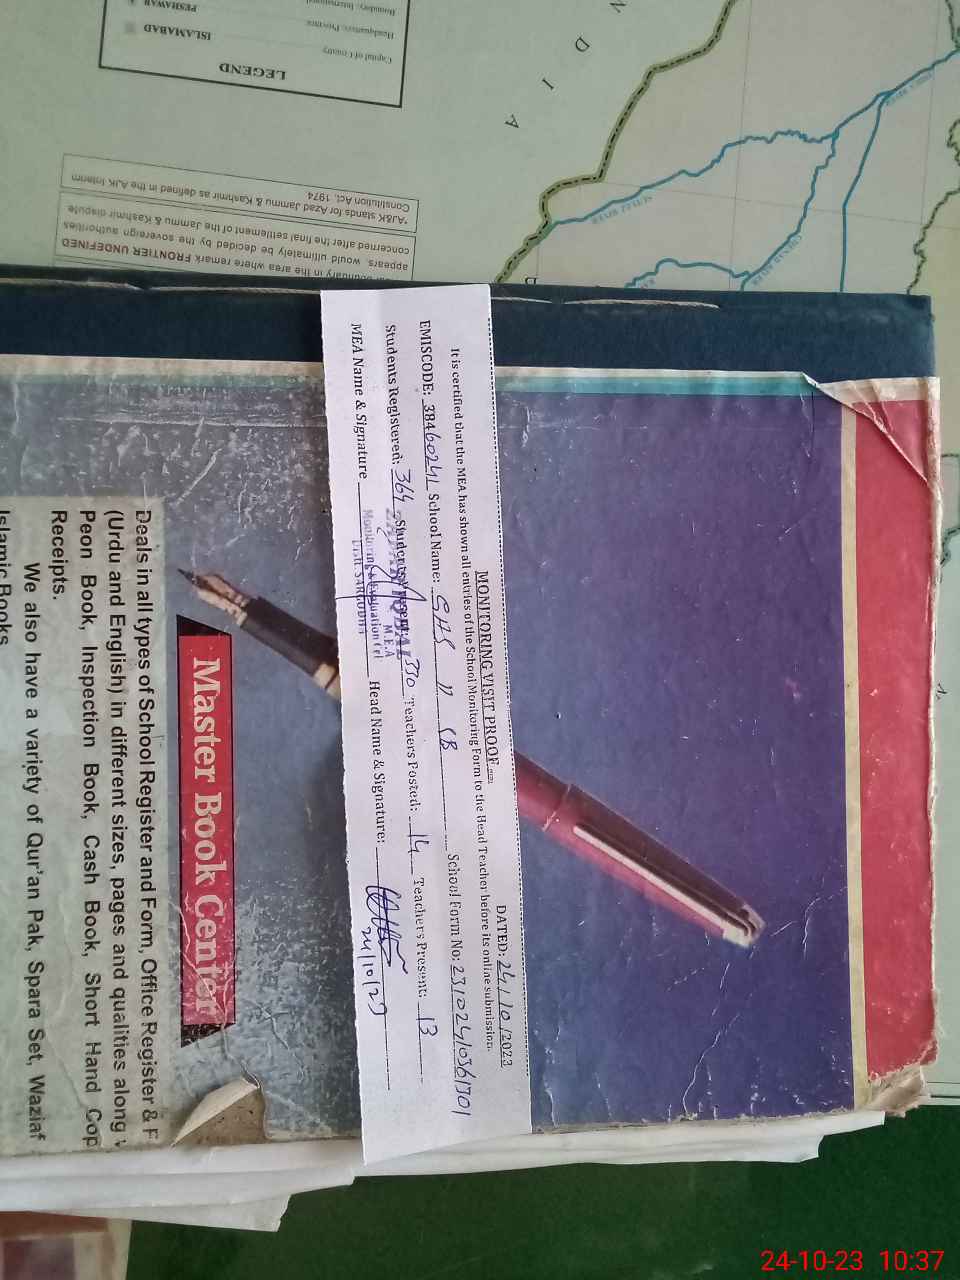 MONITORING VISIT PROOF
DATED: 24/10/2023
It is certified that the MEA has shown all entries of the School Monitoring Form to the Head Teacher before its online submission.
EMISCODE: 38460241 School Name: School Form No: 231024103361301
Students Registered: 364 Students Present: 330 Teachers Posted: 14 Teachers Present: 13
MEA Name & Signature Head Name & Signature:
24/10/23
M.E.A
Monitoring & Evaluation (F)
Distt. SARGODHA
Master Book Center
Deals in all types of School Register and Form, Office Register & F
(Urdu and English) in different sizes, pages and qualities along
Peon Book, Inspection Book, Cash Book, Short Hand Cop
Receipts.
We also have a variety of Qur'an Pak, Spara Set, Waziaf
Islamic Books
LEGEND
Capital of Country ISLAMABAD
Headquarters; Province PESHAWAR
Boundary; International
INDIA
boundary in the area where remark FRONTIER UNDEFINED
appears, would ultimately be decided by the sovereign authorities
concerned after the final settlement of the Jammu & Kashmir dispute
*AJ&K stands for Azad Jammu & Kashmir as defined in the AJK Interim
Constitution Act, 1974
SUTLEJ RIVER
CHENAB RIVER
24-10-23 10:37